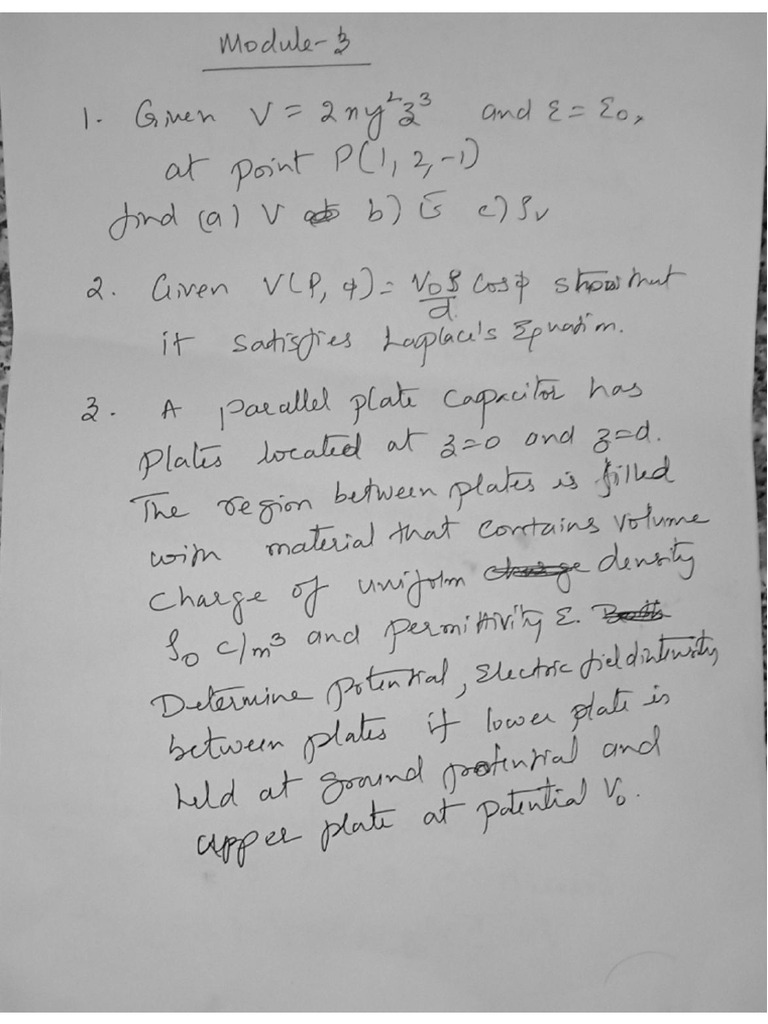 Module-3
1. Given V = 2xy²z³ and ε = ε₀,
at point P(1, 2, -1)
find (a) V b) E c) ρv
2. Given V(ρ, φ) = V₀ρ/d cos φ show that
it satisfies Laplace's Equation.
3. A parallel plate capacitor has
plates located at z=0 and z=d.
The region between plates is filled
with material that contains volume
charge of uniform density
ρ₀ c/m³ and permittivity ε.
Determine potential, Electric field intensity
between plates if lower plate is
held at ground potential and
upper plate at potential V₀.